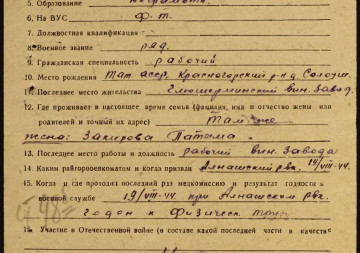 5. Образование неграмотн.
6. На ВУС ф. т.
7. Должностная квалификация -
8. Военное звание ряд.
9. Гражданская специальность рабочий
10. Место рождения Тат асср. Красногорский р-н д.
11. Последнее место жительства вин. завод.
12. Где проживает в настоящее время семья (фамилия, имя и отчество жены или
родителей и точный их адрес) Там же
жена: Закирова Патыма
13. Последнее место работы и должность рабочий вин. Завода
14. Каким райгорвоенкоматом и когда призван Алнашский рвк. 19/VIII-44.
15. Когда и где проходил последний раз медкомиссию и результат годности к
военной службе 19/VIII-44 при Алнашском рвк.
годен к физическ. труд
16. Участие в Отечественной войне (в составе какой последней части и качестве